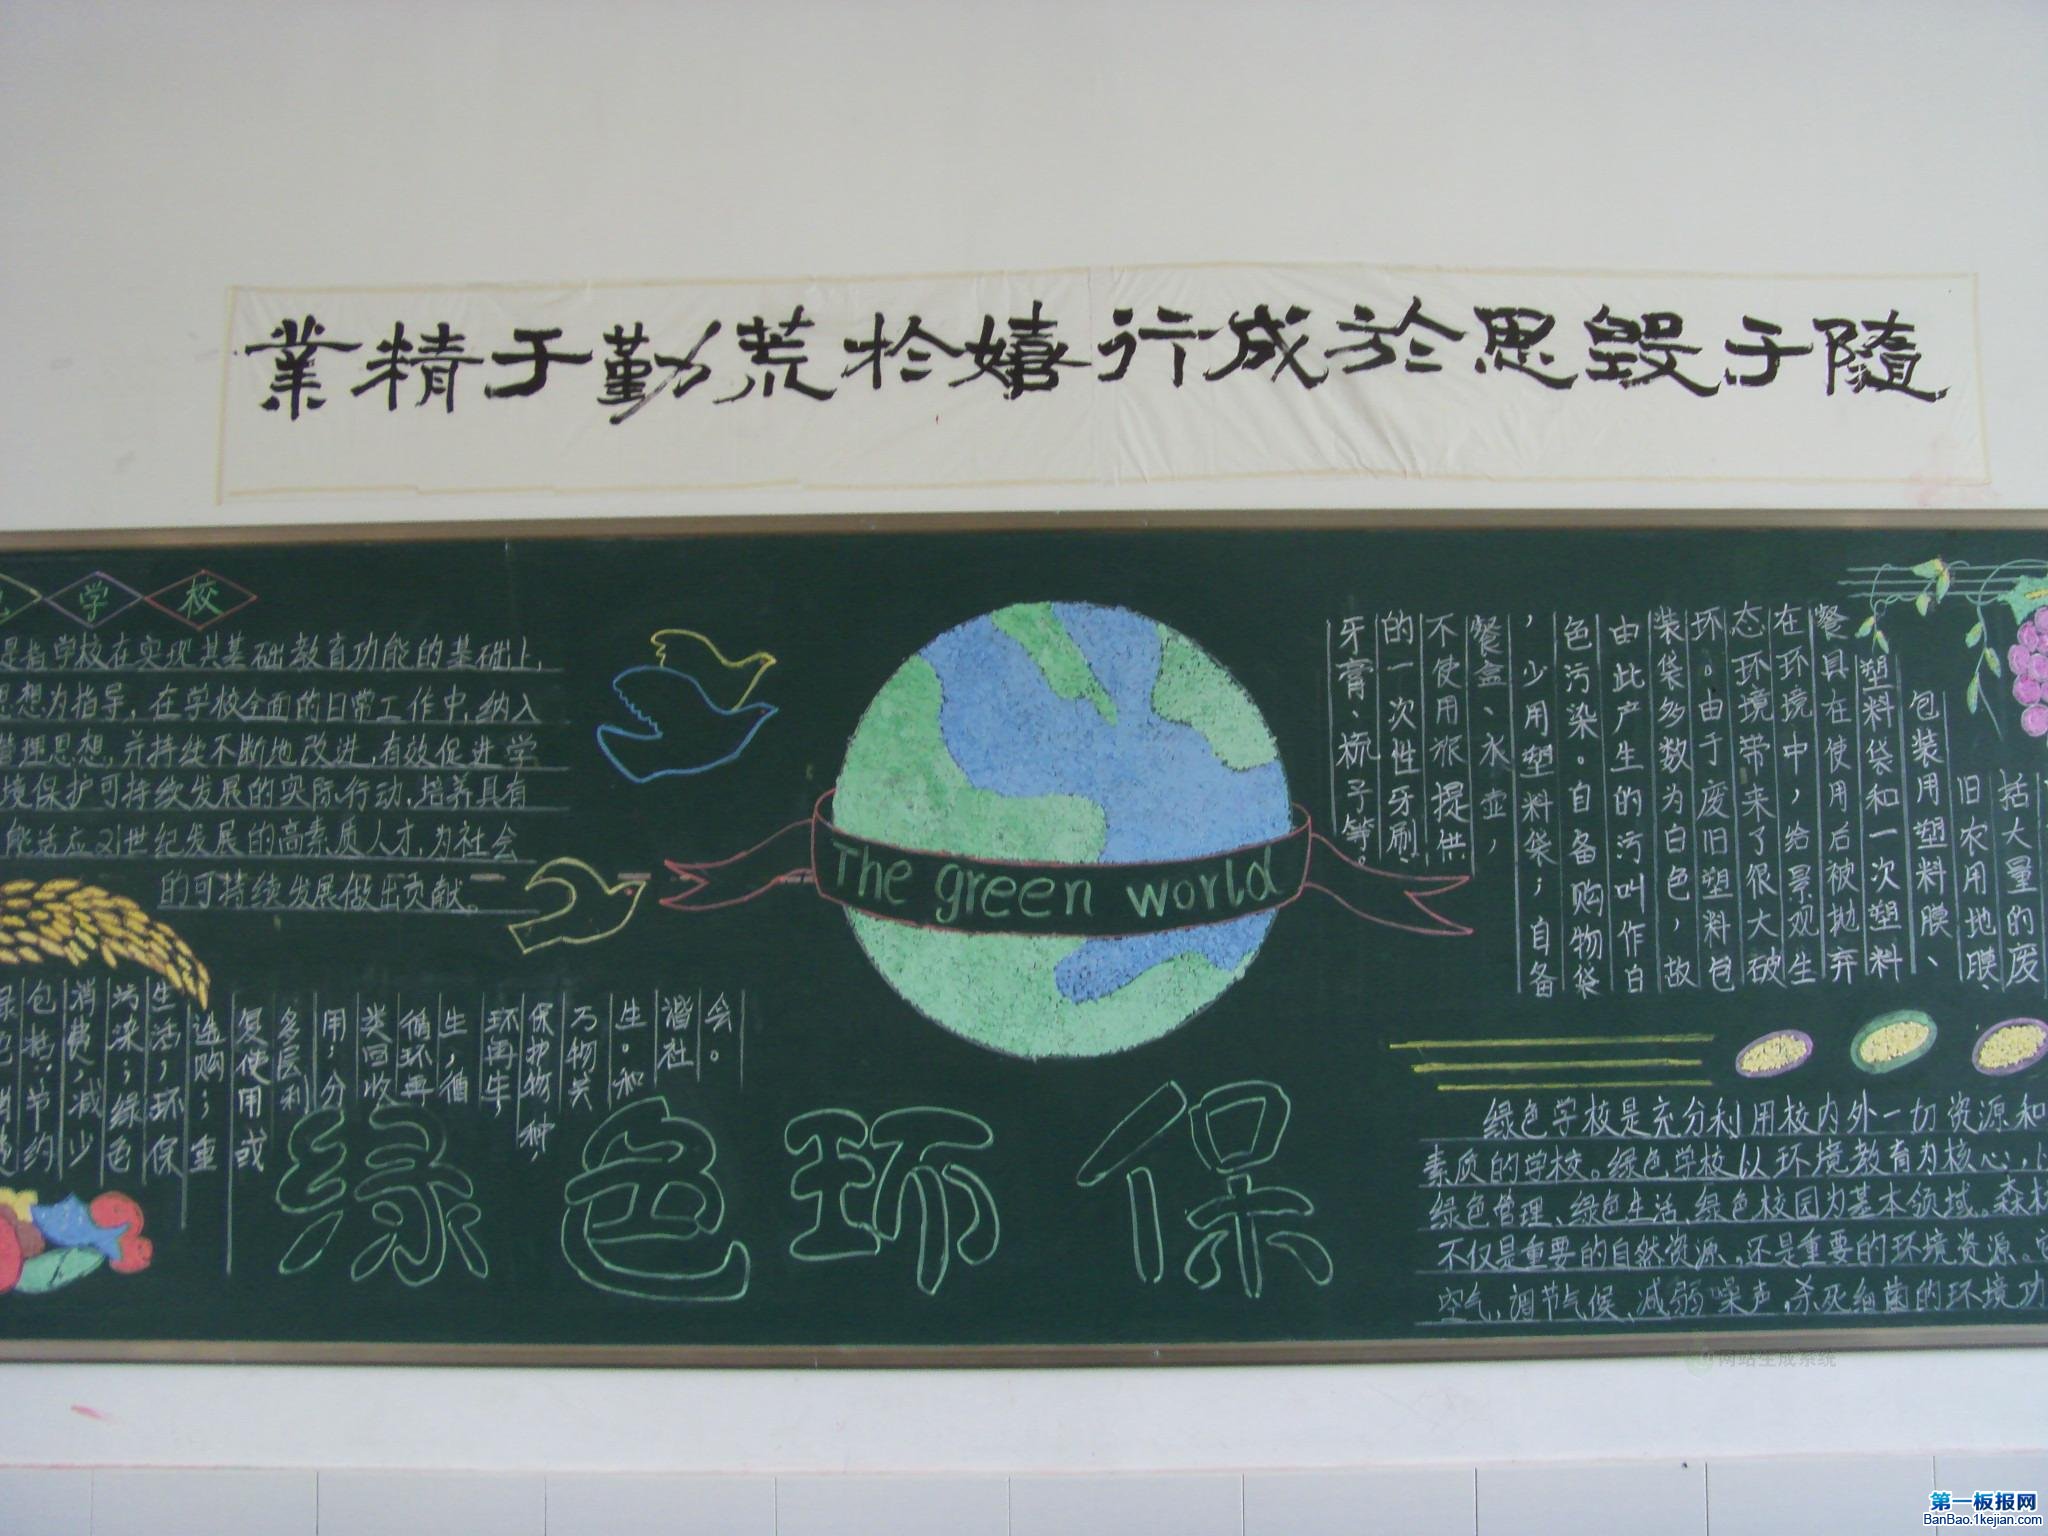 業精于勤荒於嬉行成於思毁于隨
学校
是指学校在实现其基础教育功能的基础上,
思想为指导,在学校全面的日常工作中,纳入
管理思想,并持续不断地改进,有效促进学
境保护可持续发展的实际行动,培养具有
能适应21世纪发展的高素质人才,为社会
的可持续发展做出贡献。
The green world
括大量的废
旧农用地膜、
包装用塑料膜、
塑料袋和一次塑料
餐具在使用后被抛弃
在环境中,给景观生
态环境带来了很大破
坏。由于废旧塑料包
装袋多数为白色,故
由此产生的污叫作白
色污染。自备购物袋
,少用塑料袋;自备
餐盒、水壶,
不使用旅提供
的一次性牙刷、
牙膏、梳子等。
包括:节约
消费,减少
污染;绿色
生活,环保
选购;重
复使用或
多层利
用;分
类回收
循环再
生,循
环再生,
保护物种,
万物关
生。和
谐社
会。
绿色环保
绿色学校是充分利用校内外一切资源和
素质的学校。绿色学校以环境教育为核心,
绿色管理、绿色生活、绿色校园为基本领域。森林
不仅是重要的自然资源,还是重要的环境资源。它
空气,调节气候、减弱噪声,杀死细菌的环境功
网站生成系统
第一板报网
BanBao.1kejian.com